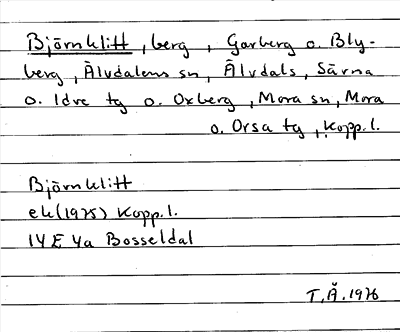 Björnklitt, berg, Garberg o. Bly-
berg, Älvdalens sn, Älvdals, Särna
o. Idre tg o. Oxberg, Mora sn, Mora
o. Orsa tg, Kopp. l.
Björnklitt
ek (1975) Kopp. l.
14 E 4a Bosseldal
T. Å. 1976